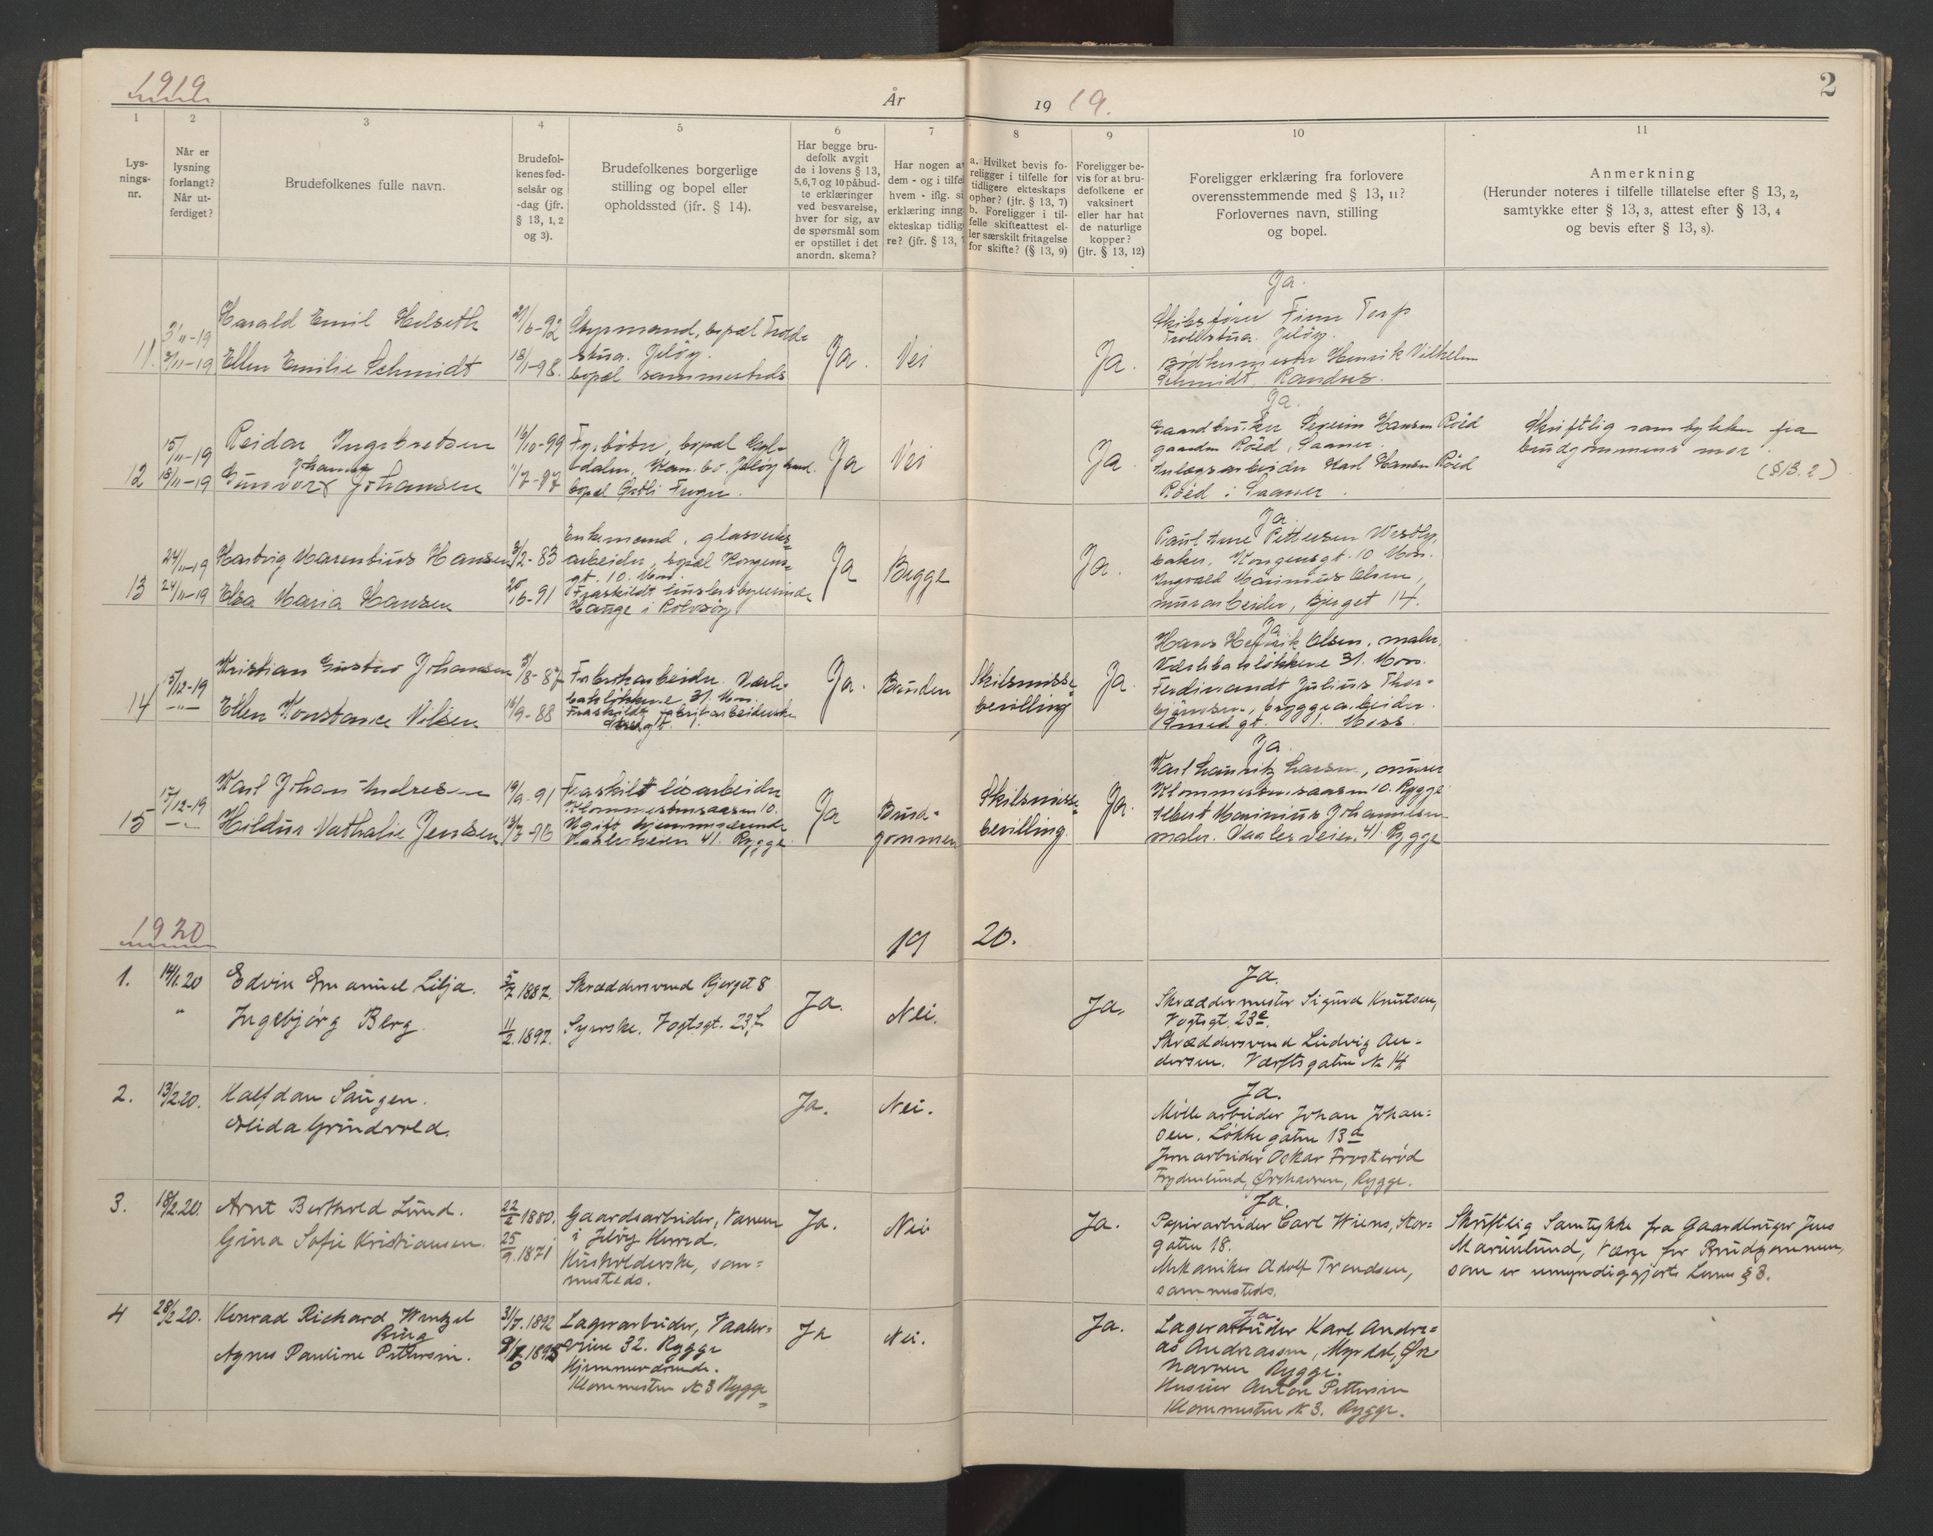 1919
År
19 19.
2
1
2
3
4
5
6
7
8
9
10
11
Lys-
nings-
nr.
Når er
lysning
forlangt?
Når ut-
ferdiget?
Brudefolkenes fulle navn.
Brudefol-
kenes fød-
selsår og
-dag (jfr.
§ 13, 1, 2
og 3).
Brudefolkenes borgerlige
stilling og bopel eller
opholdssted (jfr. § 14).
Har begge bru-
defolk avgit
de i lovens § 13,
5, 6, 7 og 10 påbud-
te erklæringer
ved besvarelse,
hver for sig, av
de spørsmål som
er opstillet i det
anordn. skema?
Har nogen av
dem - og i tilfel
hvem - iflg. si
erklæring inng
ekteskap tidlig
re? (jfr. § 13, 7
a. Hvilket bevis fo-
religger i tilfelle for
tidligere ekteskaps
ophør? (jfr. § 13, 7)
b. Foreligger i til-
felle skifteattest el-
ler særskilt fritagelse
for skifte? (§ 13, 9)
Foreligger be-
vis for at bru-
defolkene er
vaksinert
eller har hat
de naturlige
kopper?
(jfr. § 13, 12)
Foreligger erklæring fra forlovere
overensstemmende med § 13, 11?
Forlovernes navn, stilling
og bopel.
Anmerkning
(Herunder noteres i tilfelle tillatelse efter § 13, 2,
samtykke efter § 13, 3, attest efter § 13, 4
og bevis efter § 13, 8).
11.
3/11-19
3/11-19
Harald Emil Helseth
Ellen Emilie Schmidt
21/6-92
18/1-98.
Styrmand, bopæl Trold-
stua. Jeløy.
bopæl sammesteds
Ja.
Nei
Ja.
Ja.
Skibsfører Finn Torp
Troldstua. Jeløy.
Henrik Vilhelm
Schmidt, Randus.
12
15/11-19
18/11-19
Reidar Ingebretsen
Johanne
Gunvor x Johansen
16/10-99
11/7-97
Fyrbøter, bopæl
Jeløy
bopæl
Ja
Nei
Ja.
Ja.
Gaardbruker Severin Hansen Röed
gaarden Röed, Saaner.
Anlægsarbeider Karl Hansen Röed
Röed i Saaner.
Skriftlig samtykke fra
brudgommens mor.
(§ 13. 2)
13
24/11-19
24/11-19
Hartvig Marentius Hansen
Elsa Maria Hansen
3/12-83
25/6-91
Enkemand, glasverks-
arbeider, bopæl Kongens-
gt. 10. Mos.
Fraskildt husbestyrerinde
Hauge i Rolvsöy
Ja
Begge
Ja.
Ja
Paul Arne Pettersen Vestby,
baker, Kongensgt. 10 Mos.
Ingvald Marinius Olsen,
murarbeider, Bjerget 14.
14
5/12-19
-"-
Kristian Gustav Johansen
Ellen Konstance Nilsen
31/8-87
16/9-88
Fabrikarbeider. Værle-
bakløkkene 31. Mos.
Fraskildt fabrikarbeiderske
Ja.
Bruden
Skilsmisse-
bevilling
Ja.
Ja
Hans Henrik Olsen, maler.
Værlebakløkkene 31. Mos.
Ferdinandt Julius Thor-
bjørnsen, bryggearbeider.
Smedgt. 1. Moss.
15
17/12-19
-"-
Karl Johan Andresen
Hildur Nathalie Jensen
19/9-91
13/7-96
Fraskilt løsarbeider
Klommestensaasen 10.
Ugift hjemmeværende
Vaalerveien 41. Rygge
Ja
Brud-
gommen
Skilsmisse-
bevilling.
Ja.
Ja
Karl Lauritz Larsen, murer
Klommestensaasen 10. Rygge
Albert Marinius Johannesen
maler. Vaalerveien. 41. Rygge
1920
19
20.
1.
14/1.20
"
Edvin Emanuel Lilja.
Ingebjørg Berg.
5/7 1887.
11/2.1897.
Skræddersvend Bjerget 8
Syerske. Vogtsgt. 23,f
Ja.
Nei.
Ja.
Ja.
Skræddermester Sigurd Knutsen,
Vogtsgt. 23e.
Skræddersvend Ludvig An-
dersen. Værftsgaten N. 14
2.
13/2.20.
Halfdan Saugen.
Alida Grindvold.
Ja.
Nei.
Ja.
Møllearbeider Johan Johan-
sen. Løkkegaten 13a
Jernarbeider Oskar Frosterød
Frydenlund, Ørehavnen, Rygge.
3.
18/2.20.
Arnt Berthold Lund.
Gina Sofie Kristiansen.
22/2 1880.
25/9.1871
Gaardsarbeider, Vanem
i Jeløy Herred.
Husholderske, sam-
mesteds.
Ja.
Nei
Ja.
Ja.
Papirarbeider Carl Wiens, Stor-
gaten 18.
Mekaniker Adolf Trondsen,
sammesteds.
Skriftlig Samtykke fra Gaardbruger Jens
Marienlund, Værge for Brudgommen,
som er umyndiggjort. Lovens § 3.
4
28/2.20.
Konrad Richard Wentzel
Berg
Agnes Pauline Pettersen.
31/7.1892
9/10.1895
Lagerarbeider, Vaaler-
veien 32. Rygge
Hjemmeværende.
Klommesten N. 3 Rygge
Ja
Nei.
Ja.
Ja.
Lagerarbeider Karl Andre-
as Andreassen, Myrdal, Øre
havnen Rygge.
Huseier Anton Pettersen
Klommesten N. 3. Rygge.